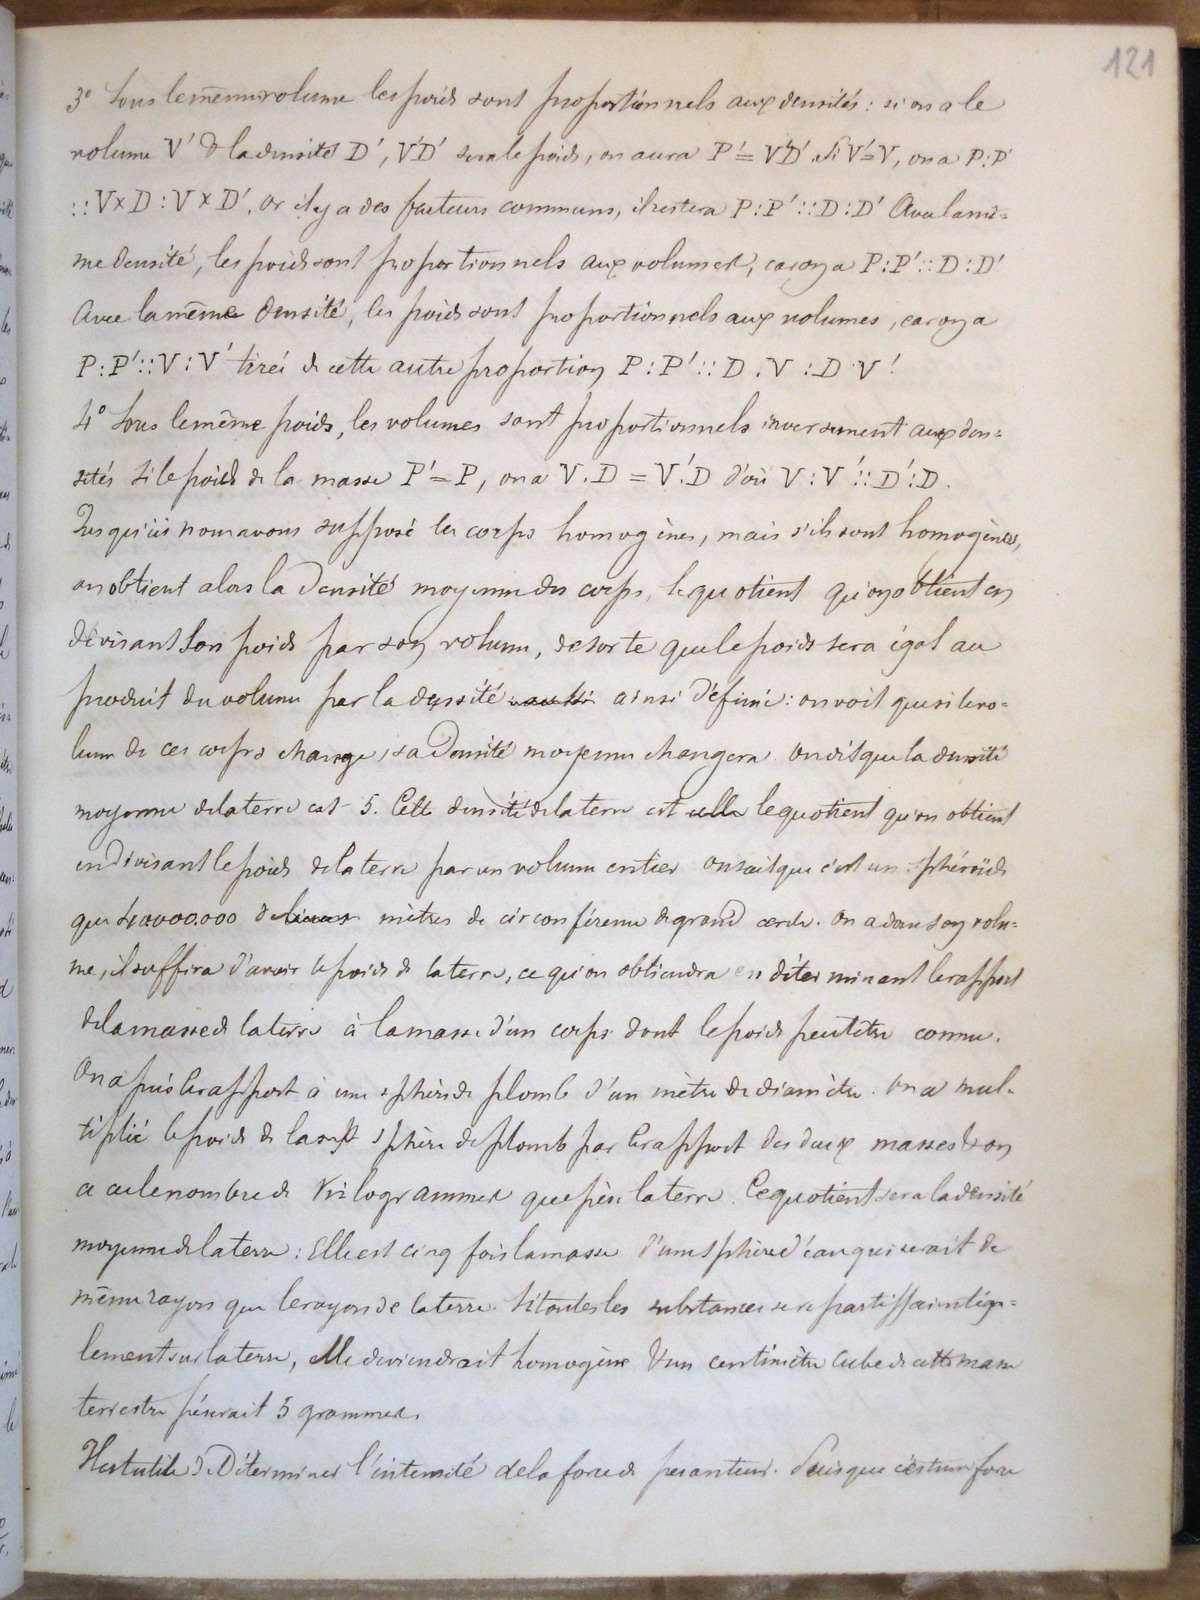 121
3° Sous le même volume les poids sont proportionnels aux densités : si on a le
volume V' & la densité D', V'D' sera le poids, on aura P' = V'D'. Si V'=V, on a P:P'
:: V x D : V x D', or il y a des facteurs communs, il restera P:P'::D:D' Avec la mê=
me densité, les poids sont proportionnels aux volumes, car on a P:P'::D:D'
Avec la même densité, les poids sont proportionnels aux volumes, car on a
P:P'::V:V' tiré de cette autre proportion P:P'::D.V:D.V'
4° Sous le même poids, les volumes sont proportionnels inversement aux den=
sités si le poids de la masse P'=P, on a V.D = V'.D d'où V:V'::D':D.
Jusqu'ici nous avons supposé les corps homogènes, mais s'ils sont homogènes,
on obtient alors la densité moyenne des corps, le quotient qu'on obtient en
divisant son poids par son volume, de sorte que le poids sera égal au
produit du volume par la densité ainsi définie : on voit que si le vo=
lume de ces corps change, sa densité moyenne changera. on dit que la densité
moyenne de la terre est 5. Cette densité de la terre est celle le quotient qu'on obtient
en divisant le poids de la terre par un volume entier on sait que c'est un sphéroïde
que 40000.000 de lieues mètres de circonférence de grand cercle. On a donc son volu=
me, il suffira d'avoir le poids de la terre, ce qu'on obtiendra en déterminant le rapport
de la masse de la terre à la masse d'un corps dont le poids peut être connu.
On a pris le rapport à une sphère de plomb d'un mètre de diamètre. on a mul=
tiplié le poids de la sphère de plomb par le rapport des deux masses & on
a eu le nombre de kilogrammes que pèse la terre. Ce quotient sera la densité
moyenne de la terre : Elle est cinq fois la masse d'une sphère d'eau qui serait de
même rayon que le rayon de la terre. Si toutes les substances se répartissaient éga=
lement sur la terre, elle deviendrait homogène & un centimètre cube de cette masse
terrestre pèserait 5 grammes.
Il est utile de Déterminer l'intensité de la force de pesanteur. Puisque c'est une force